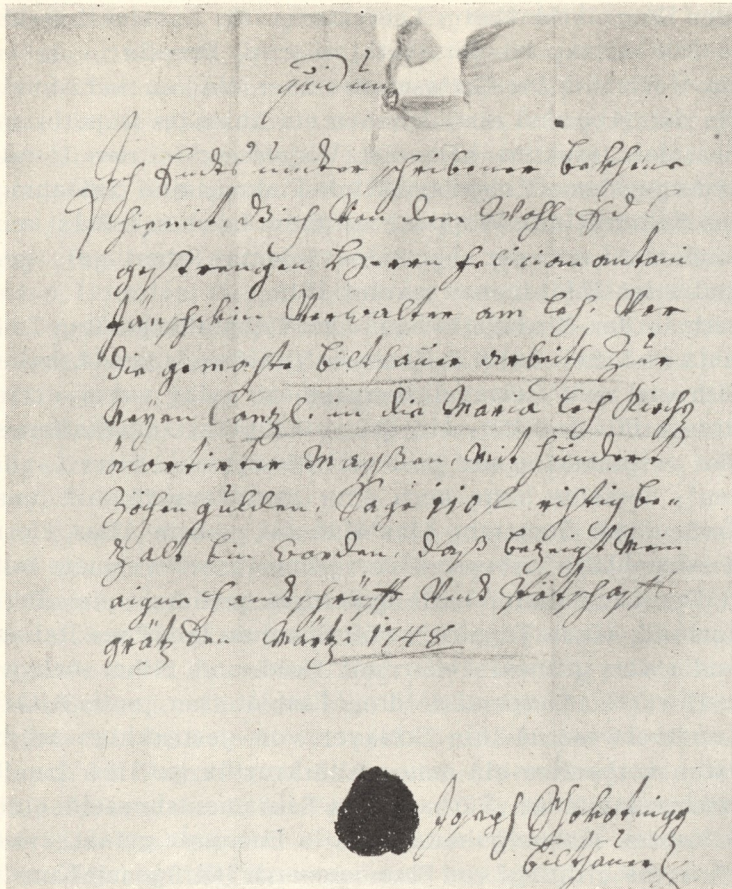 quidung
Ich Endts unter schribener bekhene
hiemit, dß ich Von dem Wohl Ed
gestrengen Herrn felician antoni
Verwalter am leh. Vor
die gemachte bilthauer arbeith Zur
Neyen Canzl. in die Maria leh Kirchen
acortirter Massßen, mit hundert
Zöchen gulden. Sage 110 f richtig be-
Zalt bin worden, daß bezeigt Mein
aigne handtschrüfft Vndt Pötschafft
grätz den Martzi 1748
Joseph Schokotnigg
bilthauer